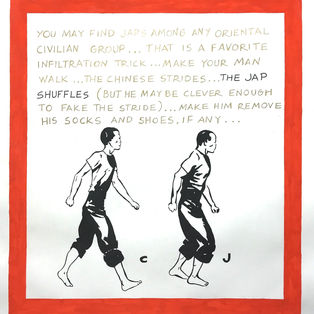 YOU MAY FIND JAPS AMONG ANY ORIENTAL
CIVILIAN GROUP... THAT IS A FAVORITE
INFILTRATION TRICK... MAKE YOUR MAN
WALK...THE CHINESE STRIDES...THE JAP
SHUFFLES (BUT HE MAY BE CLEVER ENOUGH
TO FAKE THE STRIDE)...MAKE HIM REMOVE
HIS SOCKS AND SHOES, IF ANY...
C J